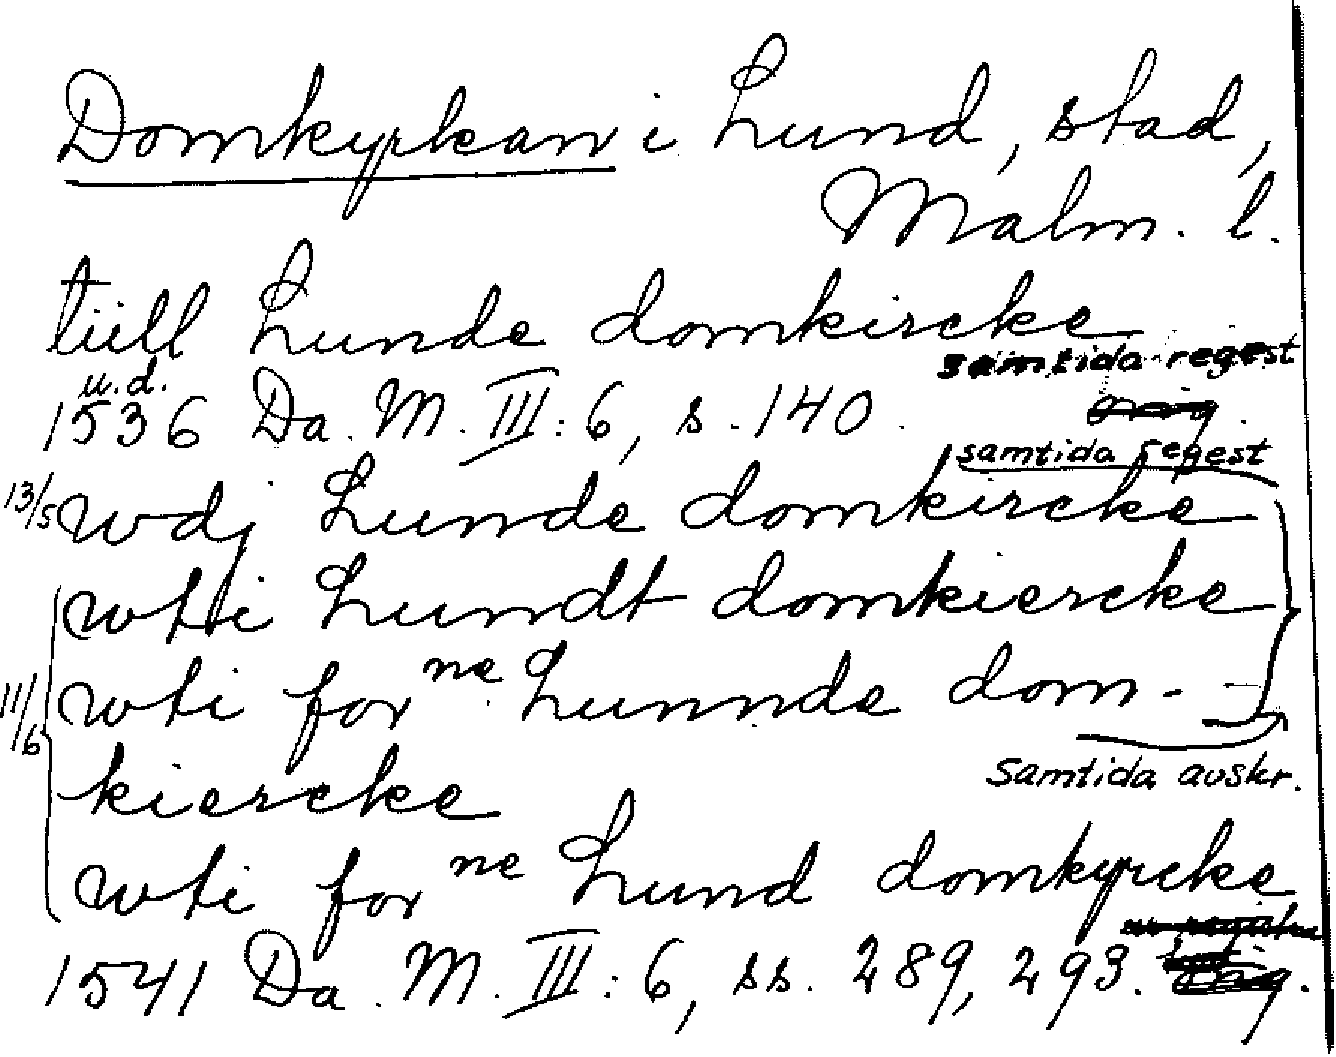 Domkyrkan i Lund, stad,
Malm. l.
tüll Lunde domkircke
samtida regest
u.d.
1536 Da. M. III:6, s. 140.
samtida regest
13/5 wdj Lunde domkircke
wtti Lundt domkiercke
11/6 wti for ne Lunnde dom-
kiercke
Samtida avskr.
wti for ne Lund domkyrcke
1541 Da. M. III:6, ss. 289, 293.